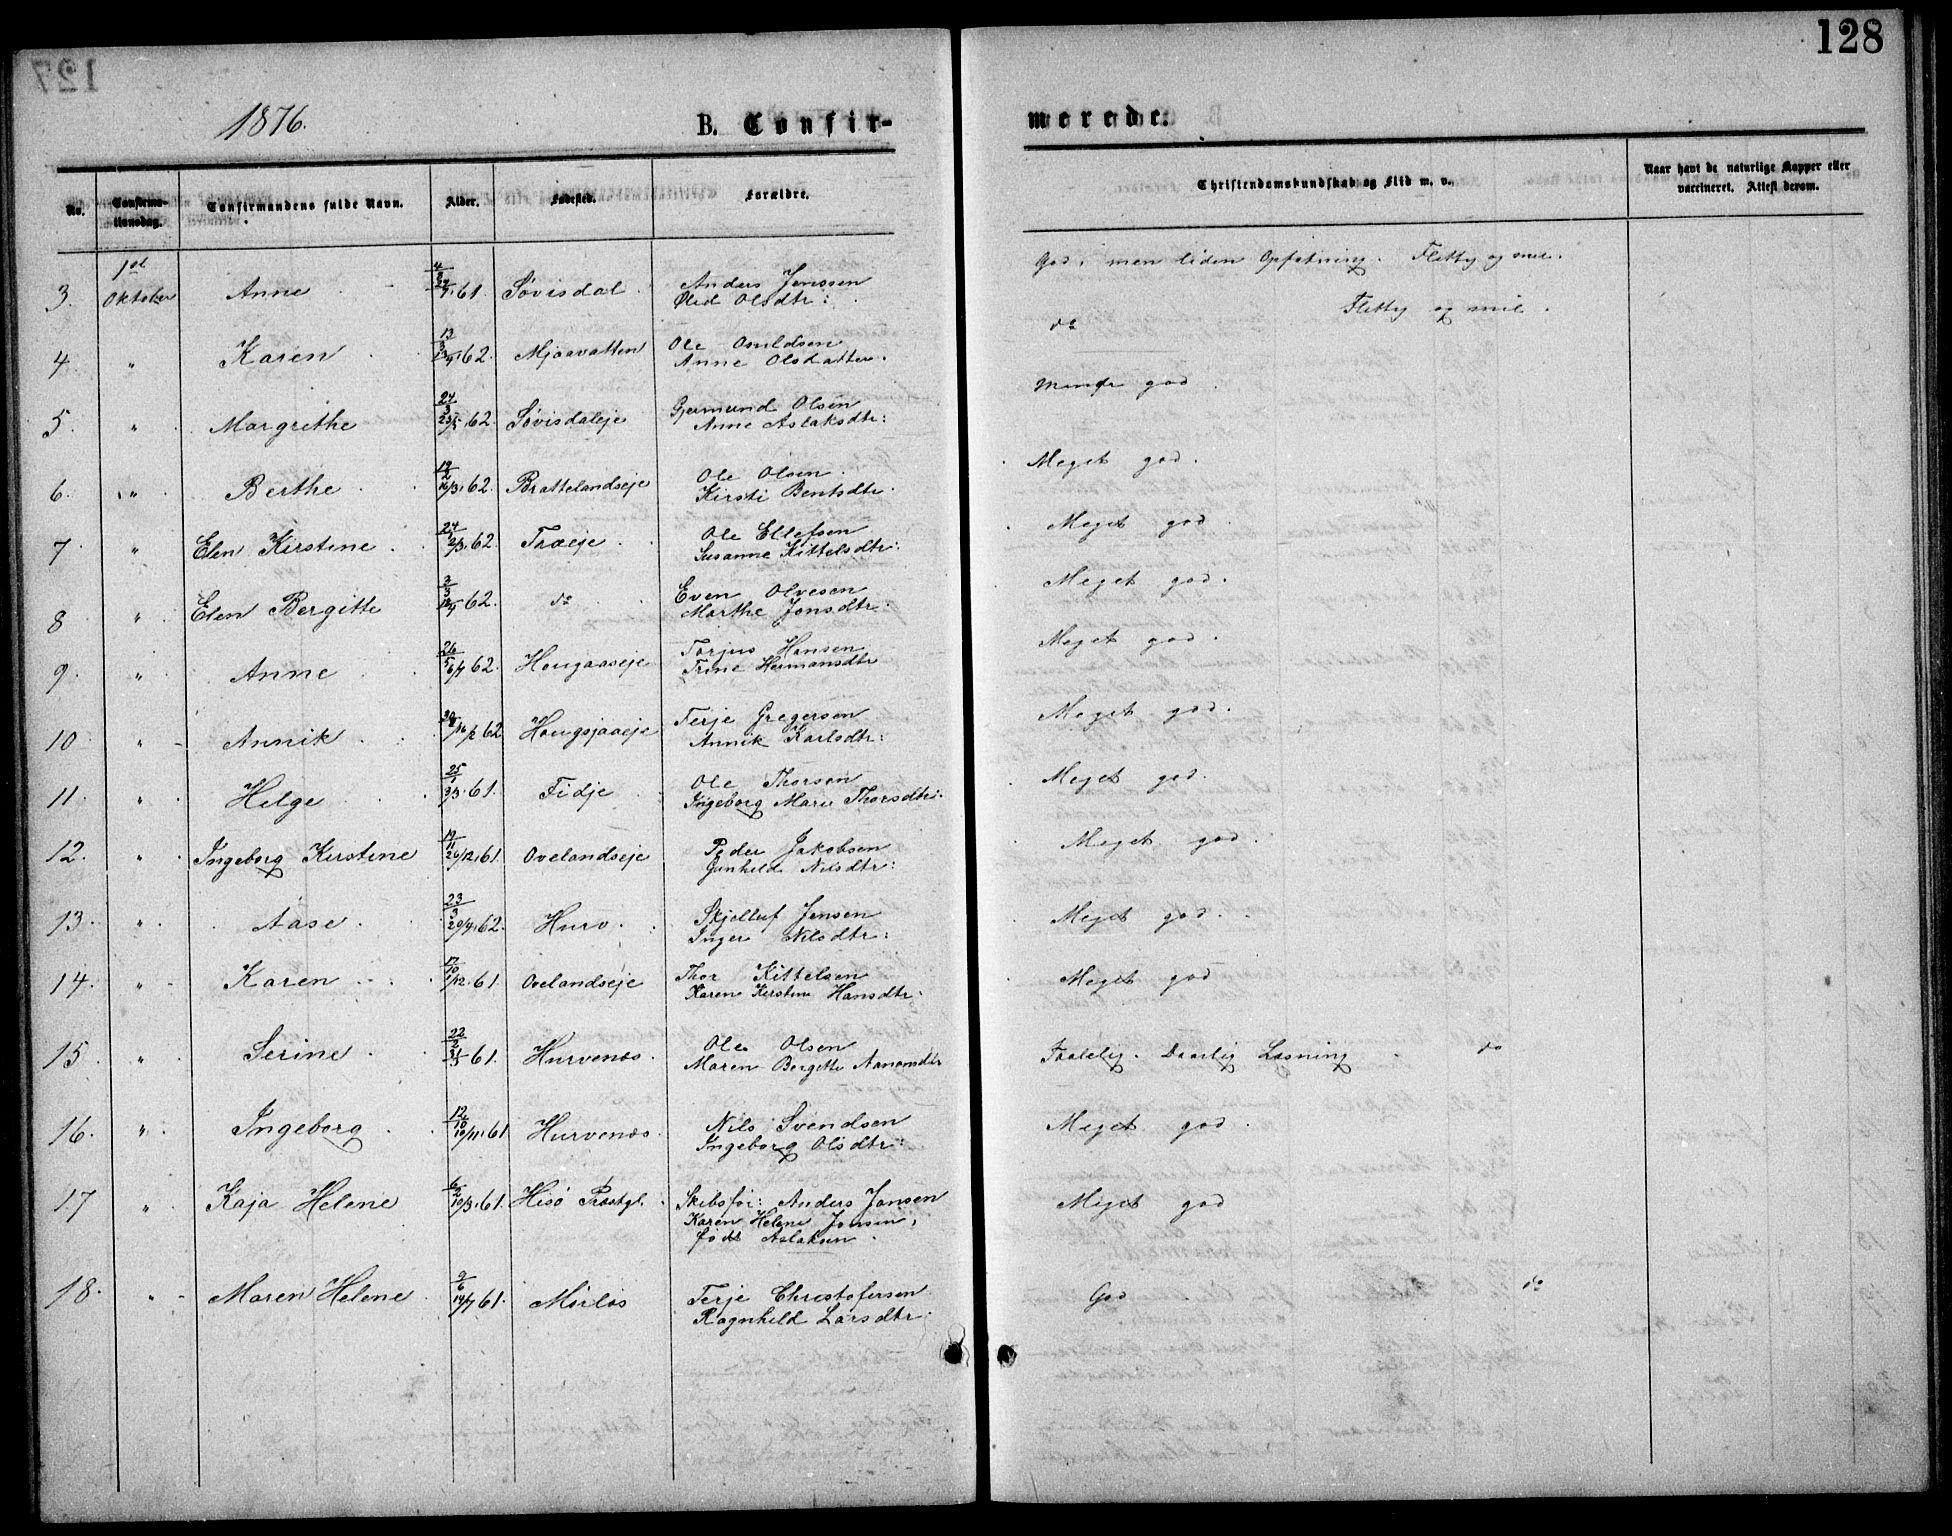 127
128
1876.
B. Confir-
merede.
No.
Confirma-
tionsdag.
Confirmandens fulde Navn.
Alder.
Fødested.
Forældre.
Christendomskundskab og Flid m. v.
Naar havt de naturlige Kopper eller
vaccineret. Attest derom.
3. 1ste Oktober Anne 61. Søvisdal Anders Jenssen
Olsdtr: God, men liden Opfatning. Flittig og snil.
4. " Karen 62. Mjaavatten Ole
Anne Olsdatter. do Flittig og snil.
5. " Margrethe 24/3 62. Søvisdaleje Gjermund Olsen
Anne Aslaksdtr: Mindre god
6. " Berthe 62. Brattelandseje Ole Olsen
Kirsti Bentsdtr. Meget god.
7. " Elen Kirstine 62. Thoeje Ole Ellefsen
Susanne Kittelsdtr: Meget god
8. " Elen Bergitte 62. do Even Olvesen
Marthe Jonsdtr. Meget god.
9. " Anne 26/5 62. Hougaaseje Torjus Hansen
Trine Hermansdtr Meget god.
10. " Annik 62 Hougsjaaeje Terje Gregersen
Annik Karlsdtr: Meget god.
11. " Helge 25/1 3/3 61. Fidje Ole Thorsen
Ingeborg Marie Thorsdtr: Meget god.
12. " Ingeborg Kirstine 26/12 61. Ovelandseje Peder Jakobsen
Gunhild Nilsdtr: Meget god.
13. " Aase 23/3 62. Hurv. Skjelluf Jensen
Inger Nilsdtr: Meget god.
14. " Karen 1/12 61 Ovelandseje Thor Kittelsen
Karen Kirstine Hansdtr. Meget god
15. " Serine 22/2 61. Hurvenes. Ole Olsen
Maren Bergitte Taalelig. Daarlig Læsning do
16. " Ingeborg 12/10 10/11 61 Hurvenes. Nils Svendsen
Ingeborg Olsdtr: Meget god.
17 " Kaja Helene 6/2 10/3 61. Hisø Præstgl. Skibsfør: Anders Jansen
Karen Helene Jonsen,
født Aslaksen. Meget god
18. " Maren Helene 9/6 14/7 61. Terje Christofersen
Ragnhild Larsdtr. God do